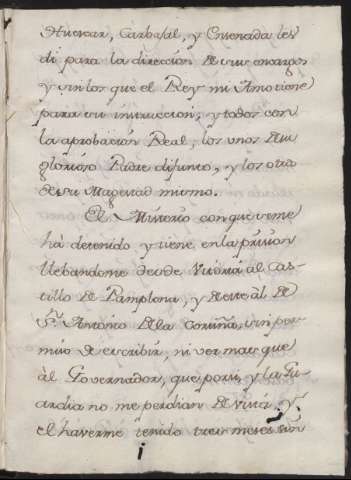 Huescar, Carbajal, y Ensenada les
di para la direccion de sus encargos
y sin los que el Rey mi Amo tiene
para su instruccion, y todos con
la aprobacion Real, los unos de su
glorioso Padre difunto, y los otros
de su Magestad mismo.
El Misterio con que se me
há detenido y tiene en la prision
llebandome desde Vitoria al Cas-
tillo de Pamplona, y de este al de
Sn. Antonio de la Coruña, sin per-
miso de escribir, ni ver mas que
àl Governador, que por si, y la Gu-
ardia no me perdian de vista. Y
el haverme tenido tres meses sin